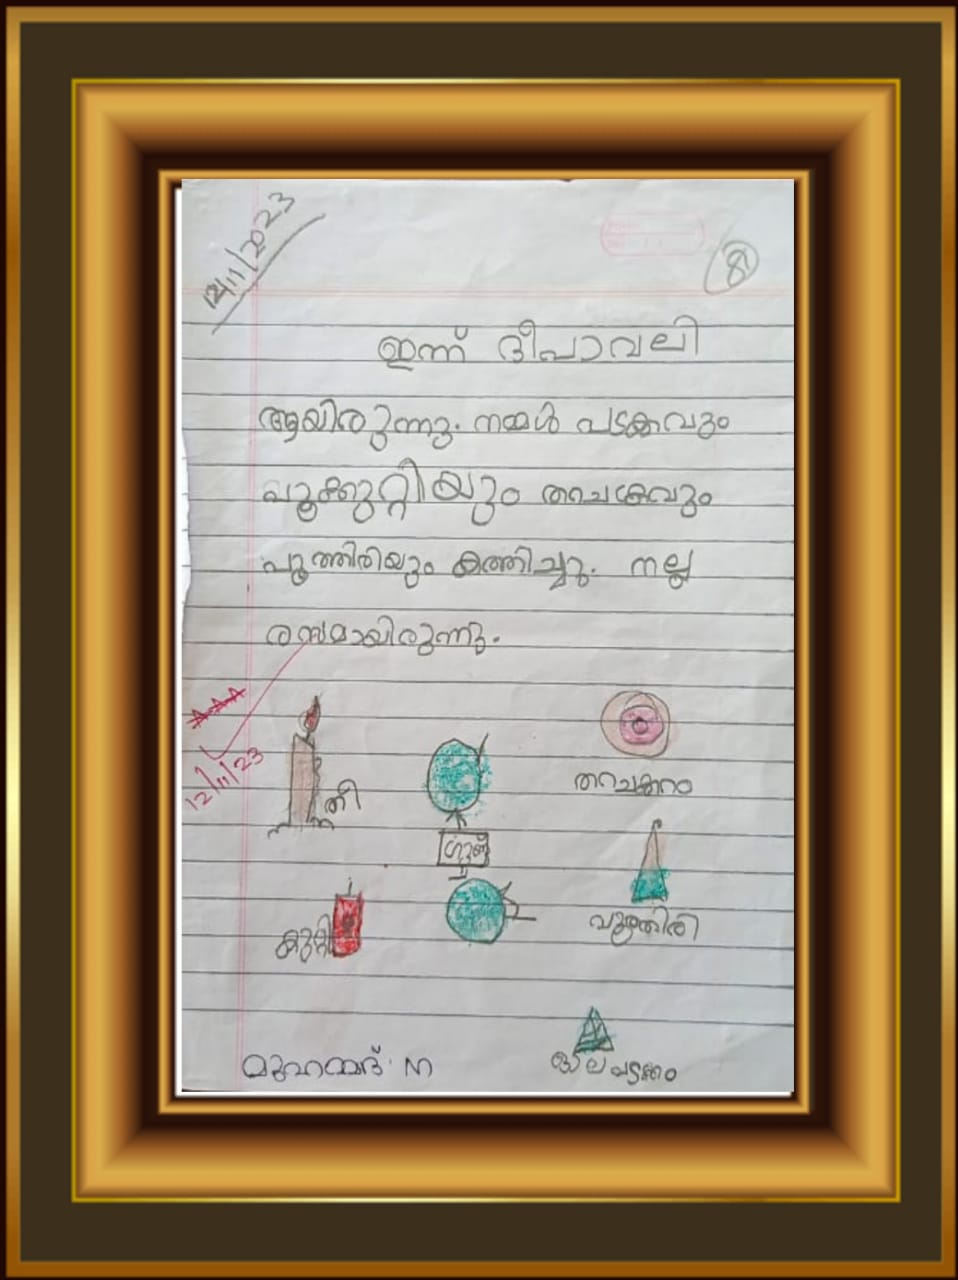 12/11/2023
8
ഇന്ന് ദീപാവലി
ആയിരുന്നു. നമ്മൾ പടക്കവും
പൂക്കുറ്റിയും തറചക്രവും
പൂത്തിരിയും കത്തിച്ചു. നല്ല
രസമായിരുന്നു.
12/11/23
തീ
തറചക്രറം
ഗുണ്ട്
കുറ്റി
പൂത്തിരി
മുഹമ്മദ്. N
ഓല പടക്കം